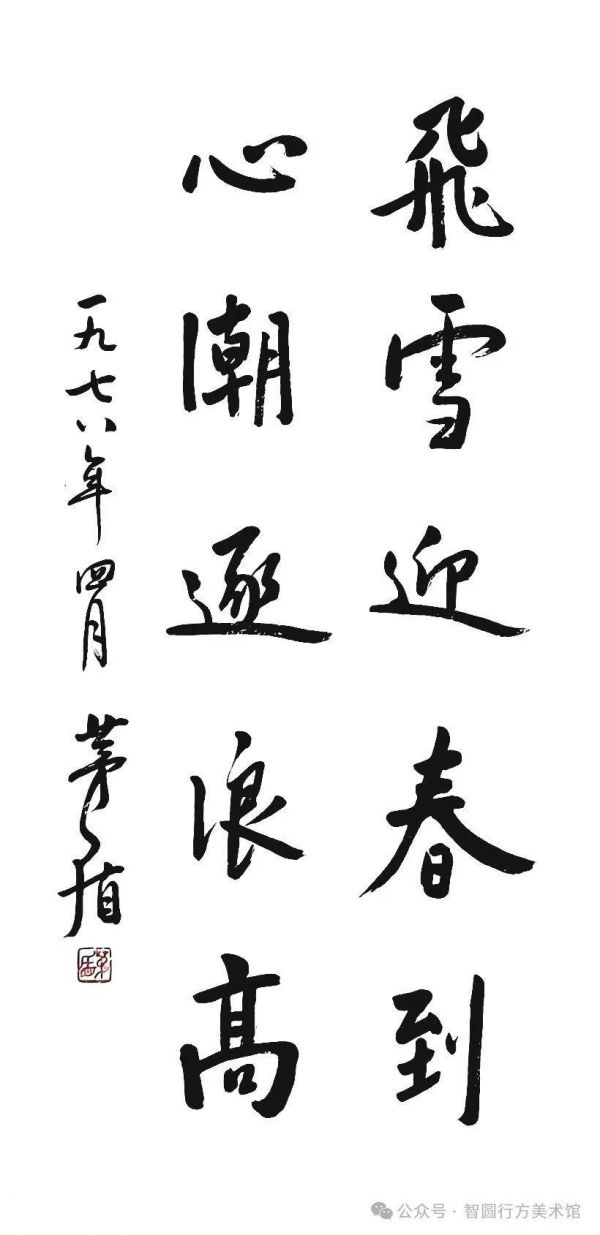 飛雪迎春到
心潮逐浪高
一九七八年四月 茅盾
茅盾
公众号·智圆行方美术馆